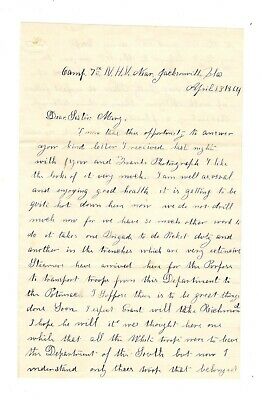 Camp 7th N.H.V. Near Jacksonvill, Fla
April 13 1864
Dear Sister Mary,
I now take this opportunity to answer
your kind letter I received last night
with your and Frank Photograph I like
the looks of it very much. I am well as usual
and enjoying good health, it is getting to be
quite hot down here now we do not drill
much now for we have so much other work to
do it takes one Brigade to do Picket duty and
another in the trenches which are very extensive
Steamers have arrived here for the Porpose
to transport troops from this Department to
the Potomac I suppose there is to be great things
done soon I expect Grant will take Richmond
I hope he will it was thought here one
while that all the White troops were to leave
this Department of the South but now I
understand only thees troops that belonged